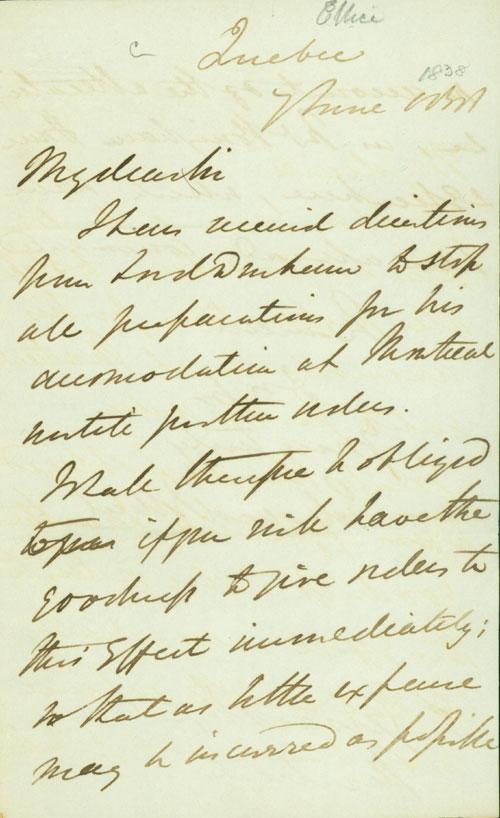 Office
C
Quebec
1838
7 June 1838
My dear Sir
I have received directions
from Lord Durham to stop
all preparations for his
accomodation at Montreal
until further orders.
I shall therefore be obliged
to you if you will have the
goodness to give orders to
this Effect immediately;
so that as little expense
may be incurred as possible